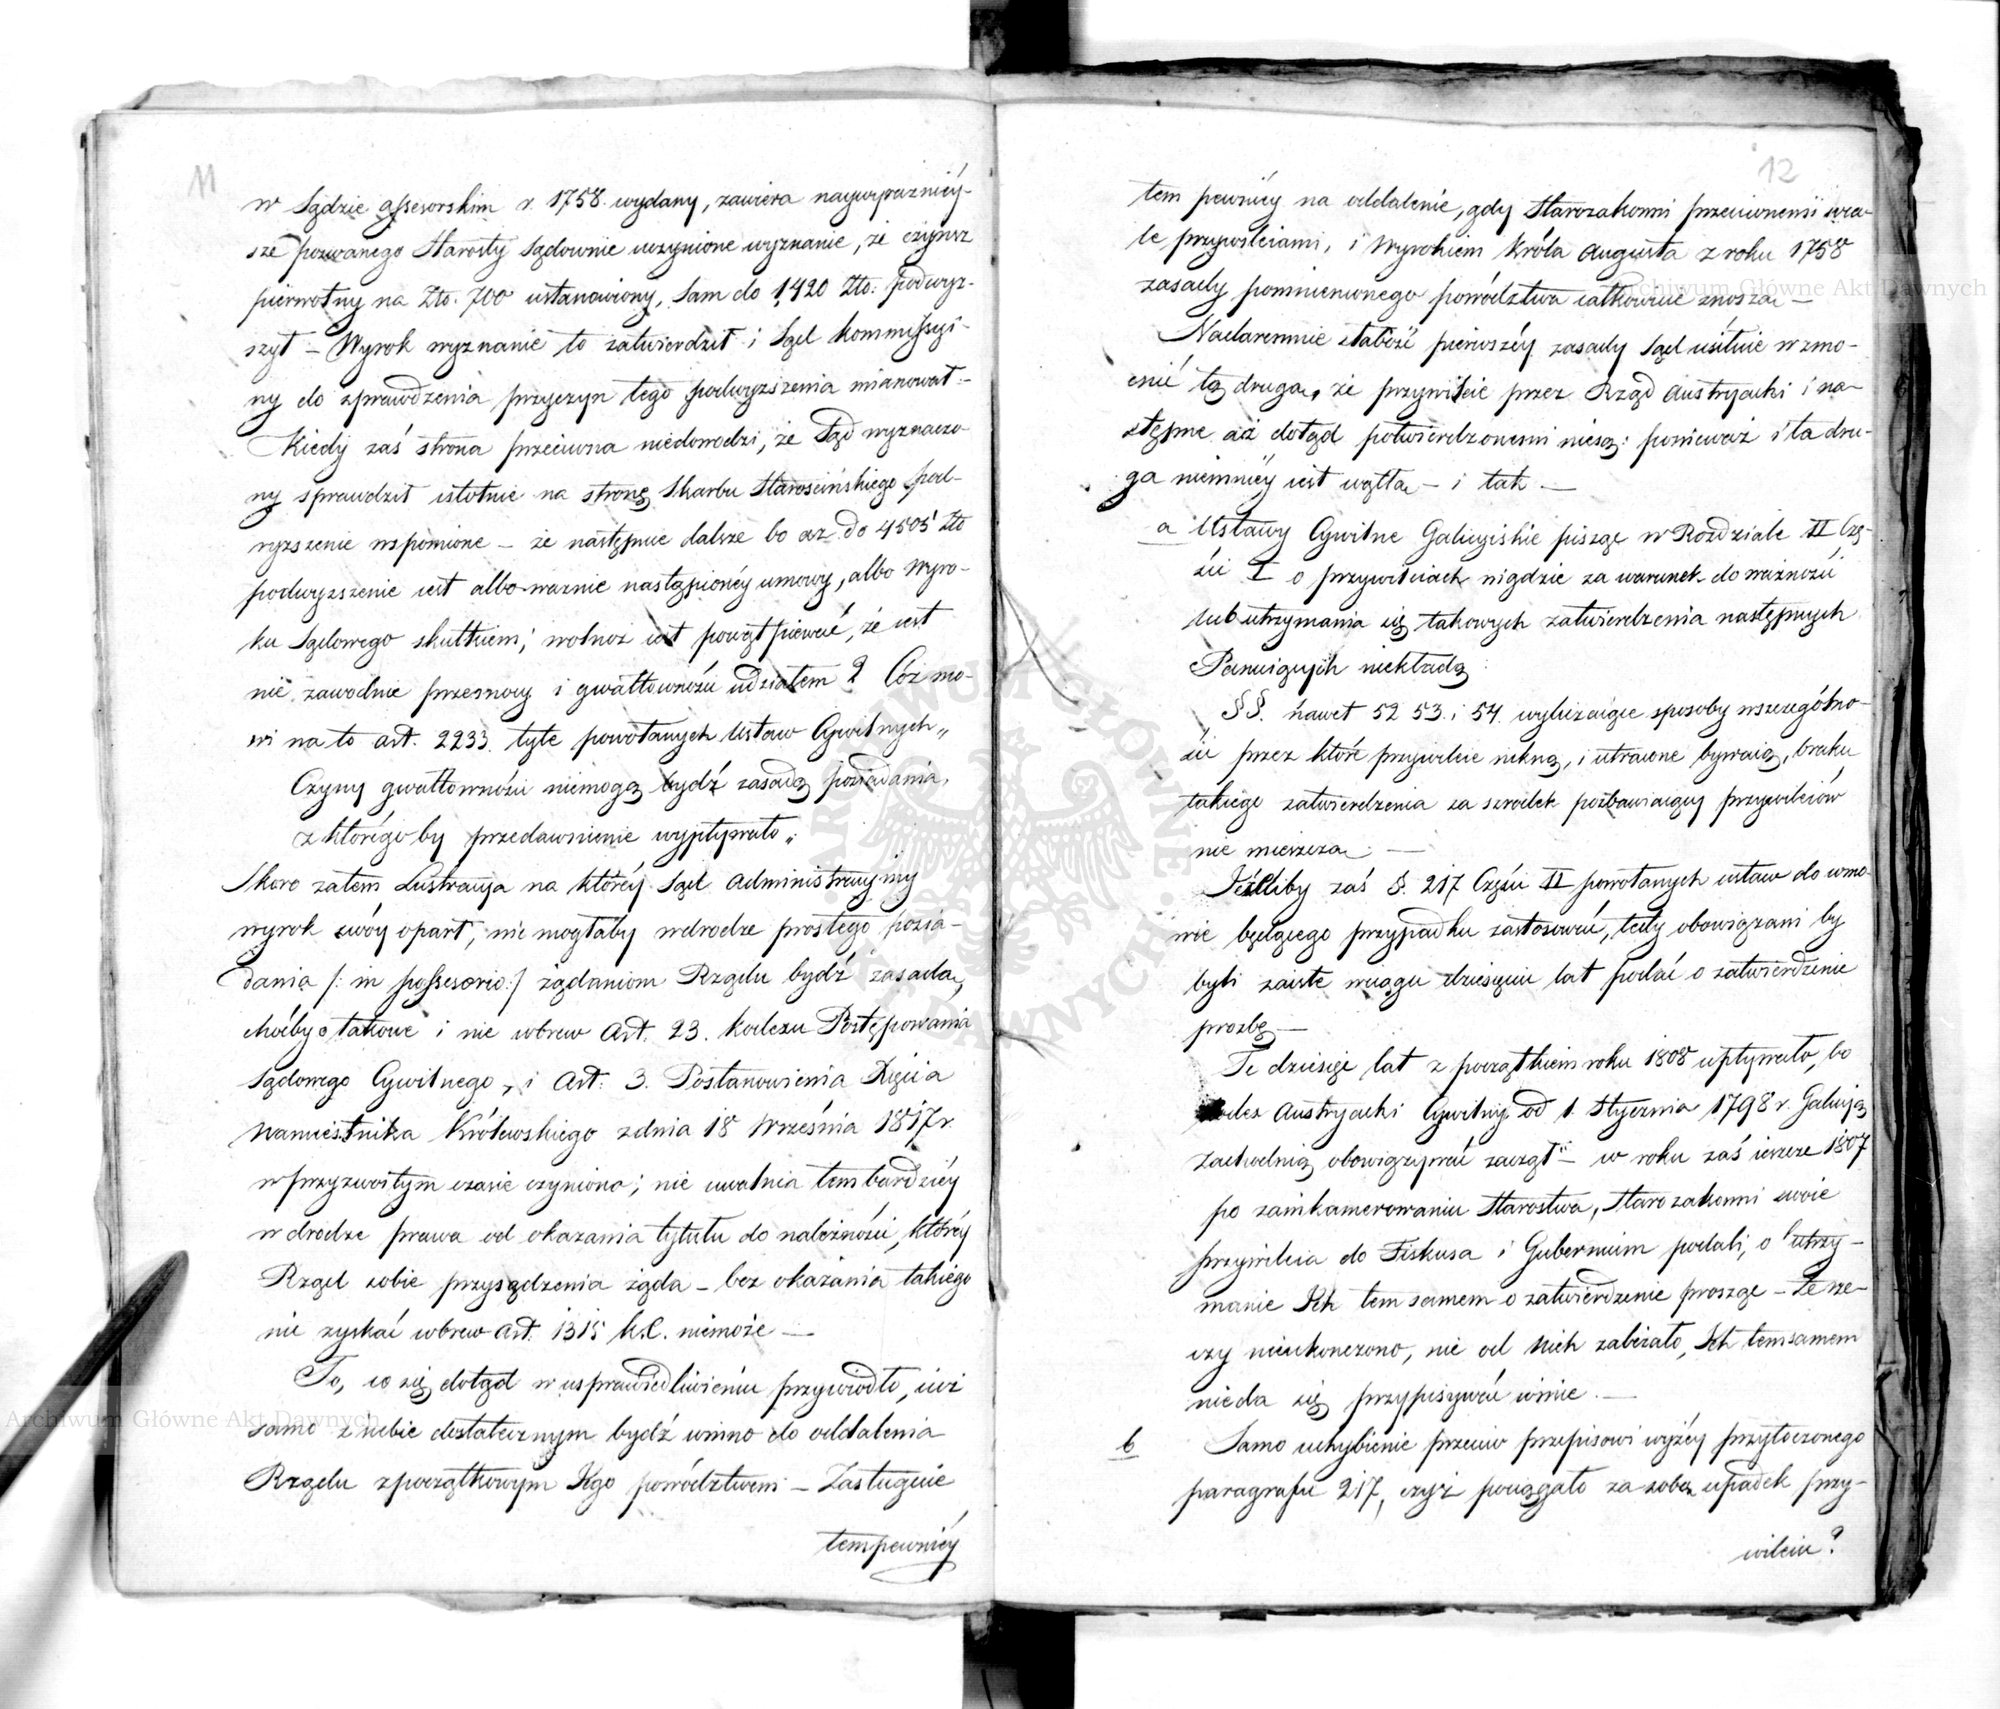 11
w Sądzie assesorskim r. 1758. wydany, zawiera naywyrazniéy-
sze pozwanego Starosty Sądownie uczynione wyznanie, że czynsz
pierwotny na Zło. 700 ustanowiony, Sam do 1420 Zło: podwyz-
szył – Wyrok wyznanie to zatwierdził i Sąd kommissyi-
ny do sprawdzenia przyczyn tego podwyzszenia mianował.-
Kiedy zaś strona przeciwna niedowodzi, że Sąd wyznaczo-
ny sprawdził istotnie na stronę Skarbu Starościńskiego pod-
wyzszenie wspomione – że następne dalsze bo aż do 4505 Zło
podwyzszenie iest albo waznie nastąpionéy umowy, albo wyro-
ku Sądowego skutkiem; wolnoż iest powątpiewać, że iest
nie zawodnie przemocy i gwałtowności udziałem? Cóż mo-
wi na to art. 2233. tyle powołanych Ustaw Cywilnych„
Czyny gwałtowności niemogą bydź zasadą posiadania,
z któregoby przedawnienie wypływało„
Skoro zatem Lustracya na któréy Sąd administracyiny
wyrok swóy oparł, nie mogłaby w drodze prostego posia-
dania /: in possesorio:/ żądaniom Rządu bydź zasadą,
choćby takowe i nie wbrew Art. 23. kodexu Postępowania
Sądowego Cywilnego, i Art: 3. Postanowienia Xięcia
Namiestnika Królewskiego z dnia 18 Września 1817 r.
w przyzwoitym czasie czyniono; nie uwalnia tem bardziéy
w drodze prawa od okazania tytułu do należności, któréy
Rząd sobie przysądzenia żąda – bez okazania takiego
nie zyskać wbrew Art. 1315 K.C. niemoże —
To, co się dotąd w usprawiedliwieniu przywiodło, iuż
samo z siebie dostatecznym bydź winno do oddalenia
Rządu z początkowym Jego powództwem – Zasługuie
tem pewniéy
12
tem pewniéy na oddalenie, gdy Starozakonni przeciwnemi wca-
le przywileiami, i Wyrokiem Króla Augusta z roku 1758
zasady pomienionego powództwa całkowicie znoszą –
Nadaremnie słabość pierwszéy zasady Sąd usiłuie wzmo-
cnić tą drugą, że przywileie przez Rząd Austryacki i na-
stępne aż dotąd potwierdzonemi niesą: ponieważ i ta dru-
ga niemniéy iest wątła – i tak —
a Ustawy Cywilne Galicyiskie pisząc w Rozdziale II Czę-
ści I o przywileiach nigdzie za warunek do ważności
lub utrzymania się takowych zatwierdzenia następnych
Panuiących niekładą
§§. nawet 52 53. i 54. wyliczaiąc sposoby wszczególno-
ści przez które przywileie nikną, i utracone bywaią, braku
takiego zatwierdzenia za szrodek pozbawiaiący przywileiów
nie mieszczą —
Jeżliby zaś §. 217 Części II powołanych ustaw do wmo-
wie będącego przypadku zastosować, tedy obowiązani by
byli zaiste wciągu dziesięciu lat podać o zatwierdzenie
prozbę —
Te dziesięć lat z początkiem roku 1808 upływało, bo
kodex Austryacki Cywilny od 1. Stycznia 1798 r. Galicyą
zachodnią obowiązywać zaczął – w roku zaś ieszcze 1807
po zainkamerowaniu Starostwa, Starozakonni swoie
przywileia do Fiskusa i Gubernium podali, o utrzy-
manie Ich tem samem o zatwierdzenie prosząc – Że rze-
czy nieukonczono, nie od nich zależało, Ich temsamem
nieda się przypisywać winie. —
b Samo uchybienie przeciw przepisowi wyżéy przytoczonego
paragrafu 217, czyż pociągało za sobą upadek przy-
wileiu?
Archiwum Główne Akt Dawnych
Archiwum Główne Akt Dawnych
ARCHIWUM GŁÓWNE AKT DAWNYCH